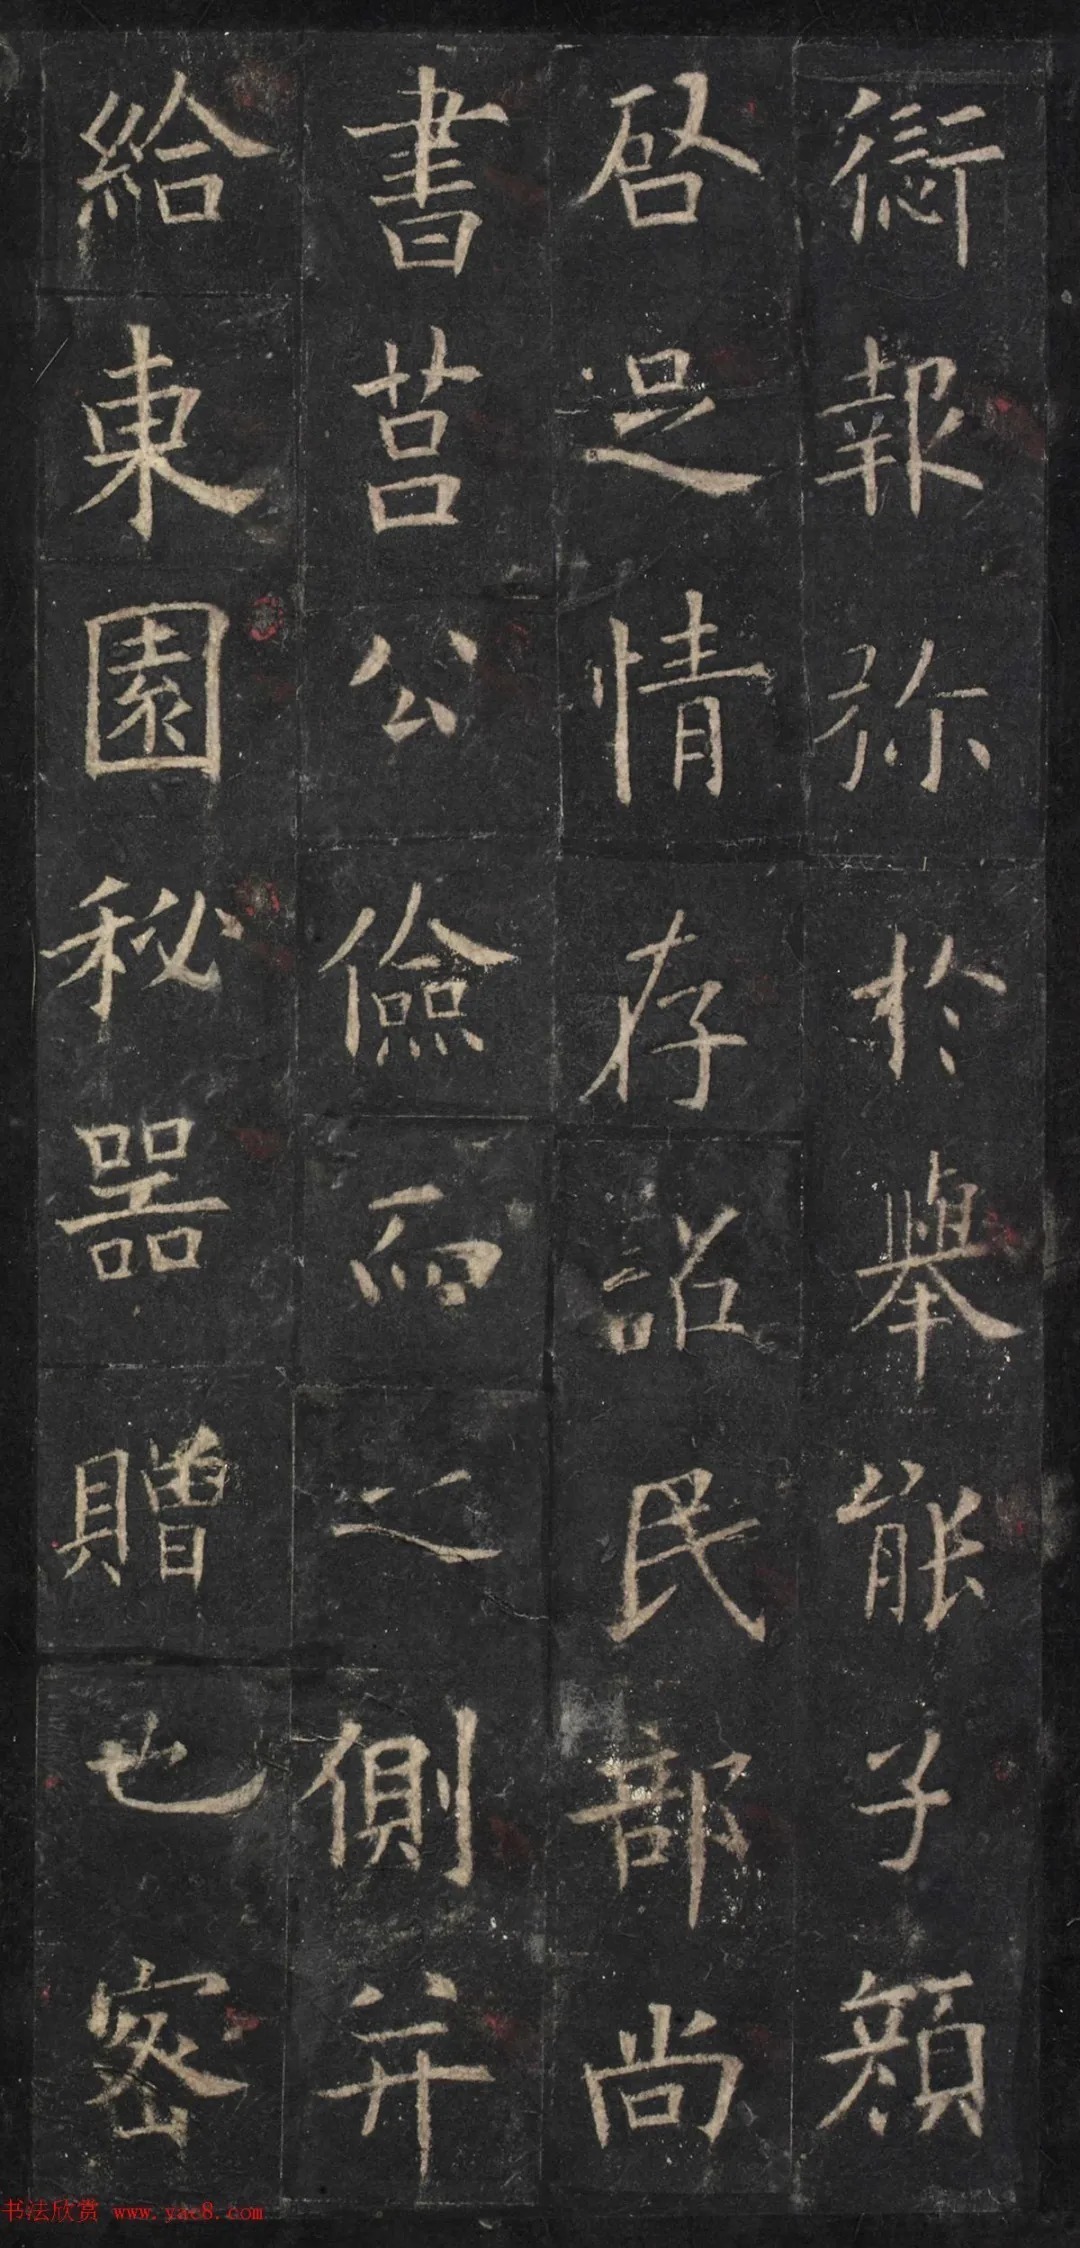 愆報弥於舉能子顔
啓足情存詔民部尚
書莒公儉而之側并
給東園秘器贈也密
书法欣赏 www.yac8.com